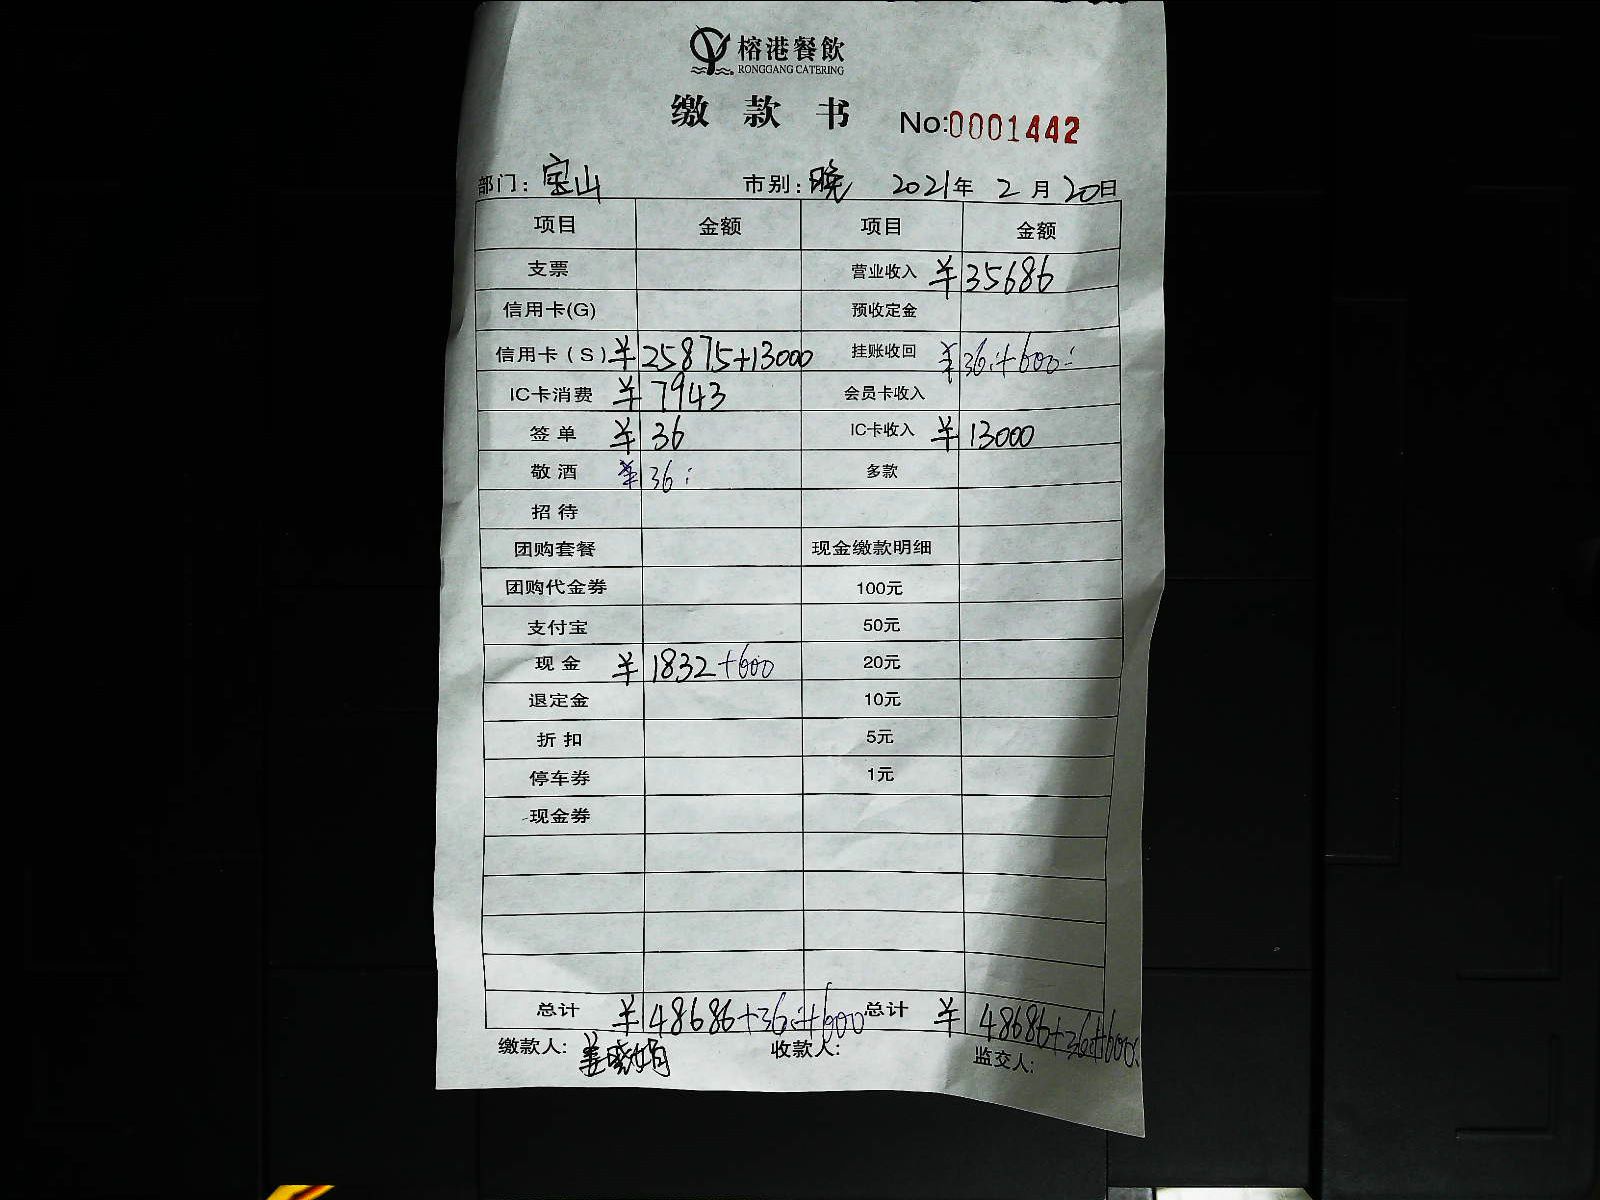 榕港餐飲
RONGGANG CATERING
缴款书
No:0001442
部门：宝山 市别：晚 2021年 2月 20日
项目 金额 项目 金额
支票 营业收入 ¥35686
信用卡(G) 预收定金
信用卡（S） ¥25875+13000 挂账收回 ¥36.+600.
IC卡消费 ¥7943 会员卡收入
签单 ¥36 IC卡收入 ¥13000
敬酒 ¥36. 多款
招待
团购套餐 现金缴款明细
团购代金券 100元
支付宝 50元
现金 ¥1832+600 20元
退定金 10元
折扣 5元
停车券 1元
现金券
总计 ¥48686+36.+600 总计 ¥48686+36+600.
缴款人：姜晓娟 收款人： 监交人：